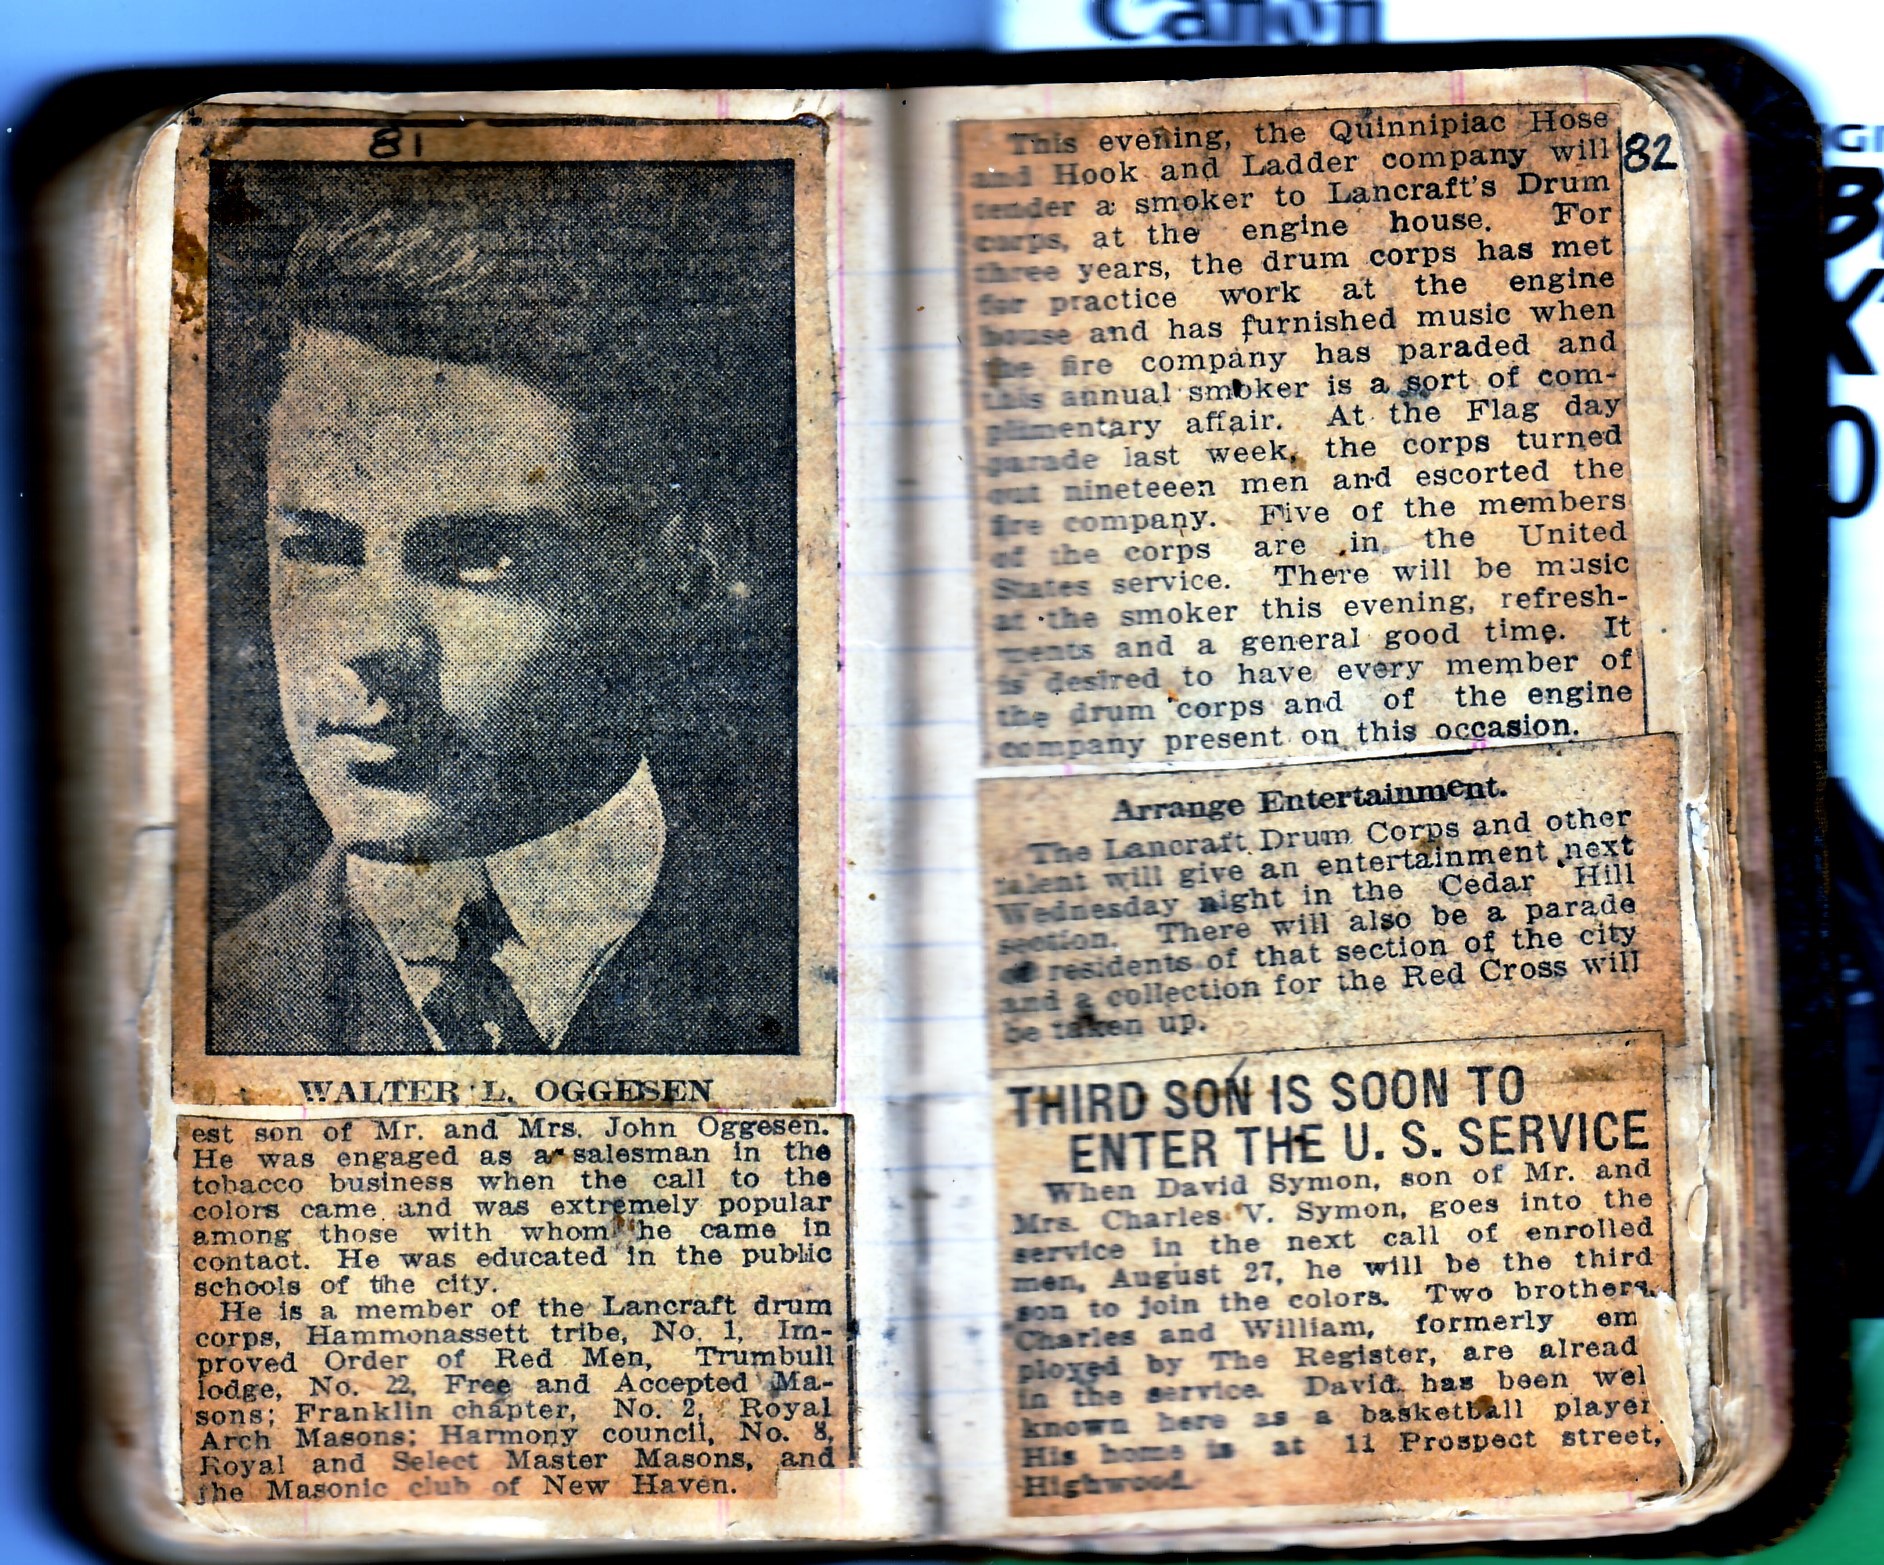 81
WALTER L. OGGESEN
est son of Mr. and Mrs. John Oggesen.
He was engaged as a salesman in the
tobacco business when the call to the
colors came and was extremely popular
among those with whom he came in
contact. He was educated in the public
schools of the city.
He is a member of the Lancraft drum
corps, Hammonassett tribe, No. 1, Im-
proved Order of Red Men, Trumbull
lodge, No. 22, Free and Accepted Ma-
sons; Franklin chapter, No. 2, Royal
Arch Masons; Harmony council, No. 8,
Royal and Select Master Masons, and
the Masonic club of New Haven.
82
This evening, the Quinnipiac Hose
and Hook and Ladder company will
tender a smoker to Lancraft's Drum
corps, at the engine house. For
three years, the drum corps has met
for practice work at the engine
house and has furnished music when
the fire company has paraded and
this annual smoker is a sort of com-
plimentary affair. At the Flag day
parade last week, the corps turned
out nineteeen men and escorted the
fire company. Five of the members
of the corps are in the United
States service. There will be music
at the smoker this evening, refresh-
ments and a general good time. It
is desired to have every member of
the drum corps and of the engine
company present on this occasion.
Arrange Entertainment.
The Lancraft Drum Corps and other
talent will give an entertainment next
Wednesday night in the Cedar Hill
section. There will also be a parade
of residents of that section of the city
and a collection for the Red Cross will
be taken up.
THIRD SON IS SOON TO
ENTER THE U. S. SERVICE
When David Symon, son of Mr. and
Mrs. Charles V. Symon, goes into the
service in the next call of enrolled
men, August 27, he will be the third
son to join the colors. Two brothers,
Charles and William, formerly em
ployed by The Register, are alread
in the service. David has been wel
known here as a basketball player
His home is at 11 Prospect street,
Highwood.